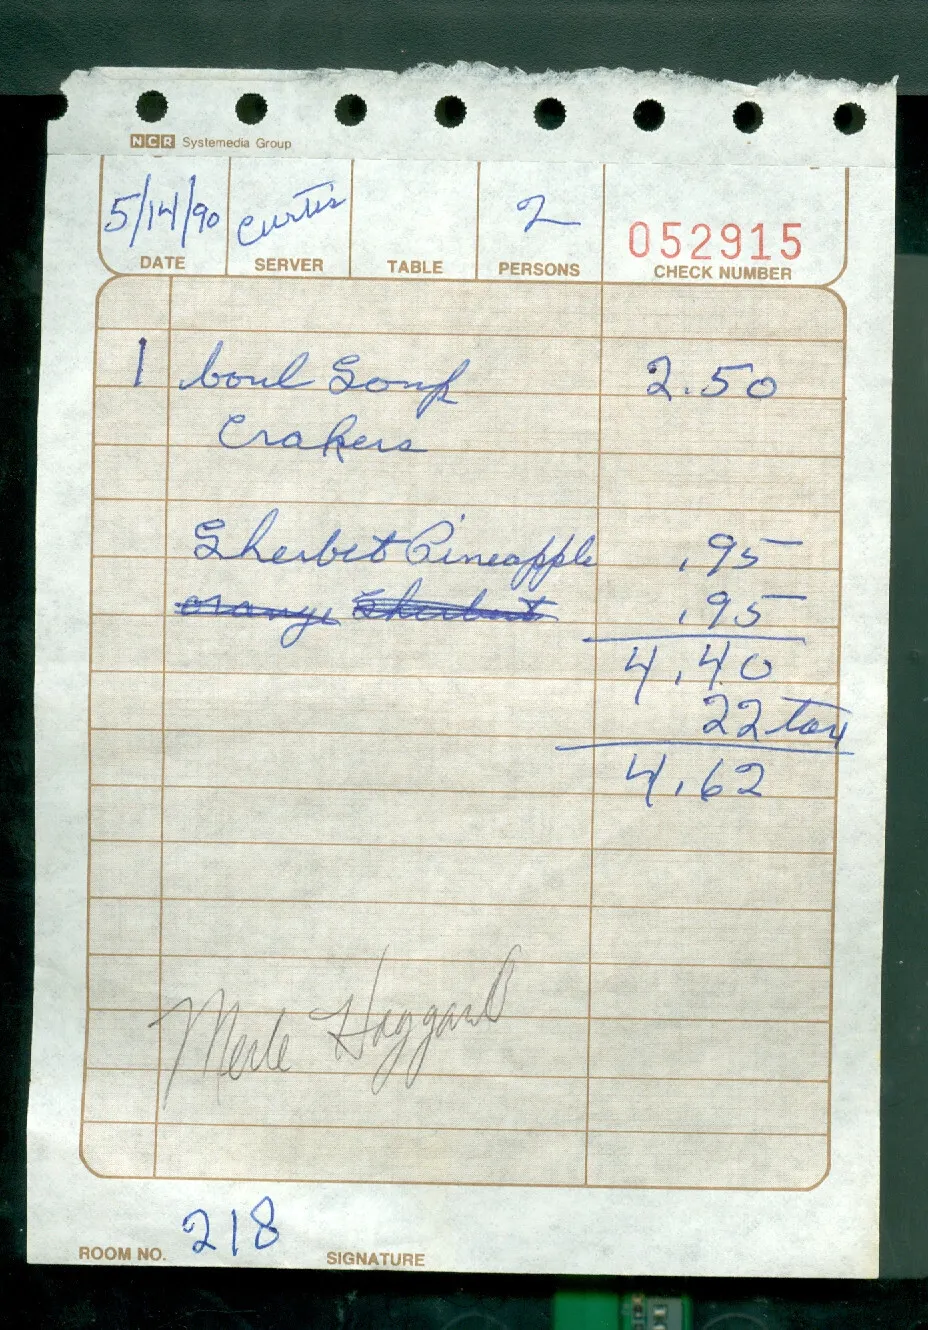 NCR Systemedia Group
5/14/90 Curtis 2 052915
DATE SERVER TABLE PERSONS CHECK NUMBER
1 boul Soup 2.50
Crakers
Sherbet Pineapple .95
orange Sherbet .95
4.40
22 tax
4.62
Merle Haggard
ROOM NO. 218 SIGNATURE